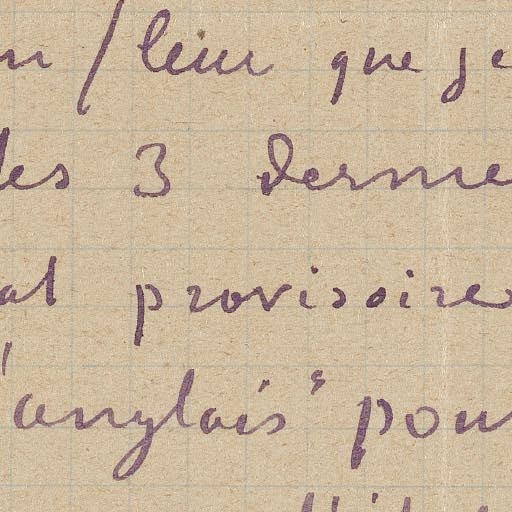 /leur que je
des 3 derme
provisoire
"anglais" pour